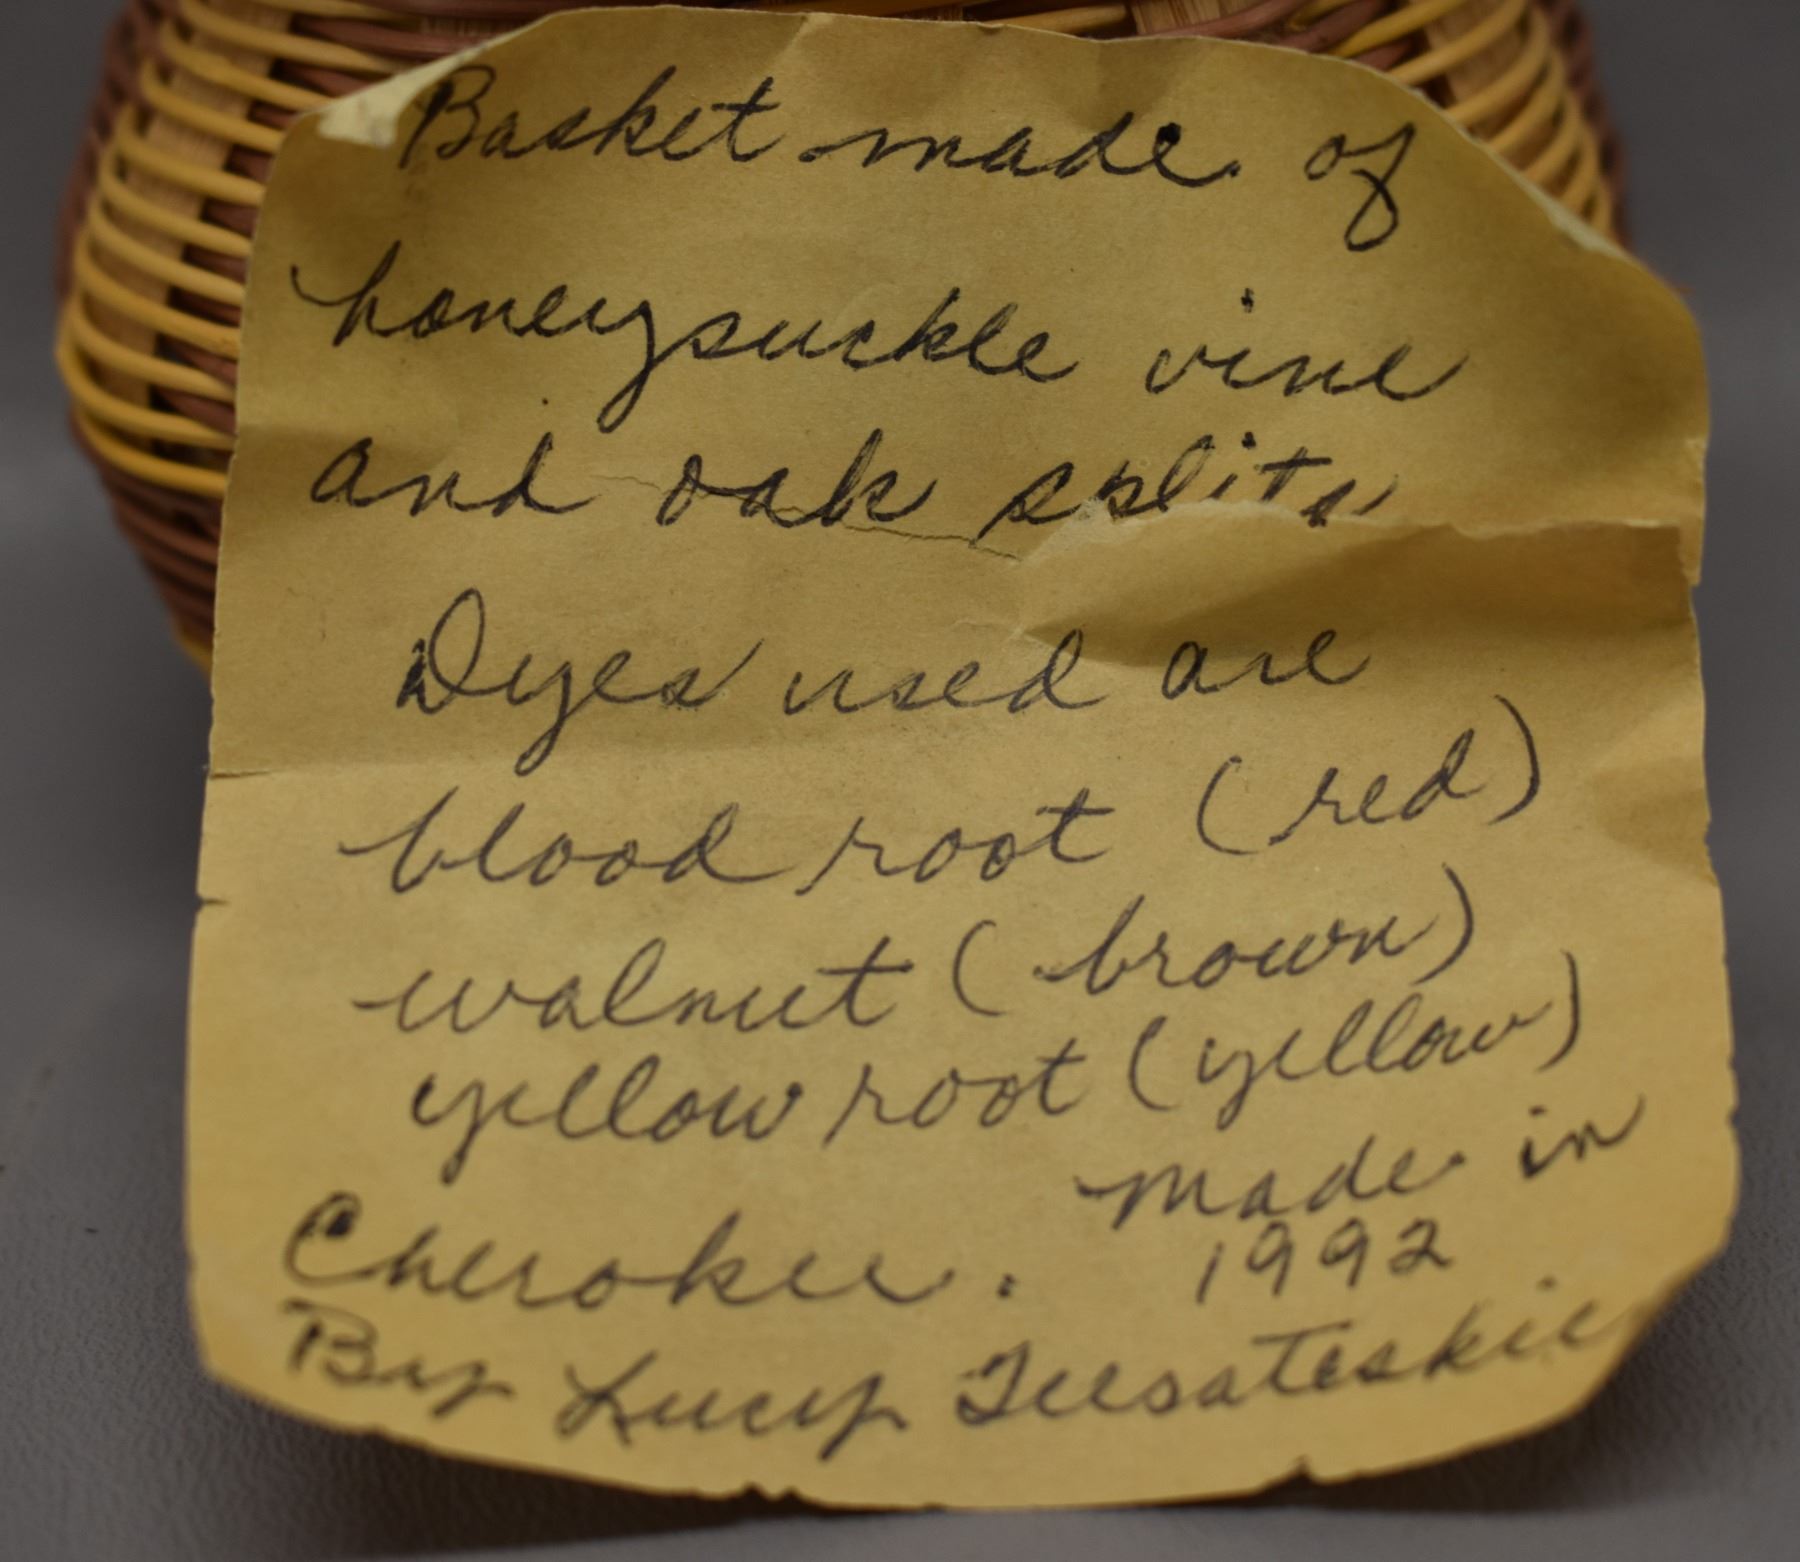 Basket made of
honeysuckle vine
and oak splits
Dyes used are
blood root (red)
walnut (brown)
yellow root (yellow)
made in
Cherokee. 1992
By Lucy Teesateskie